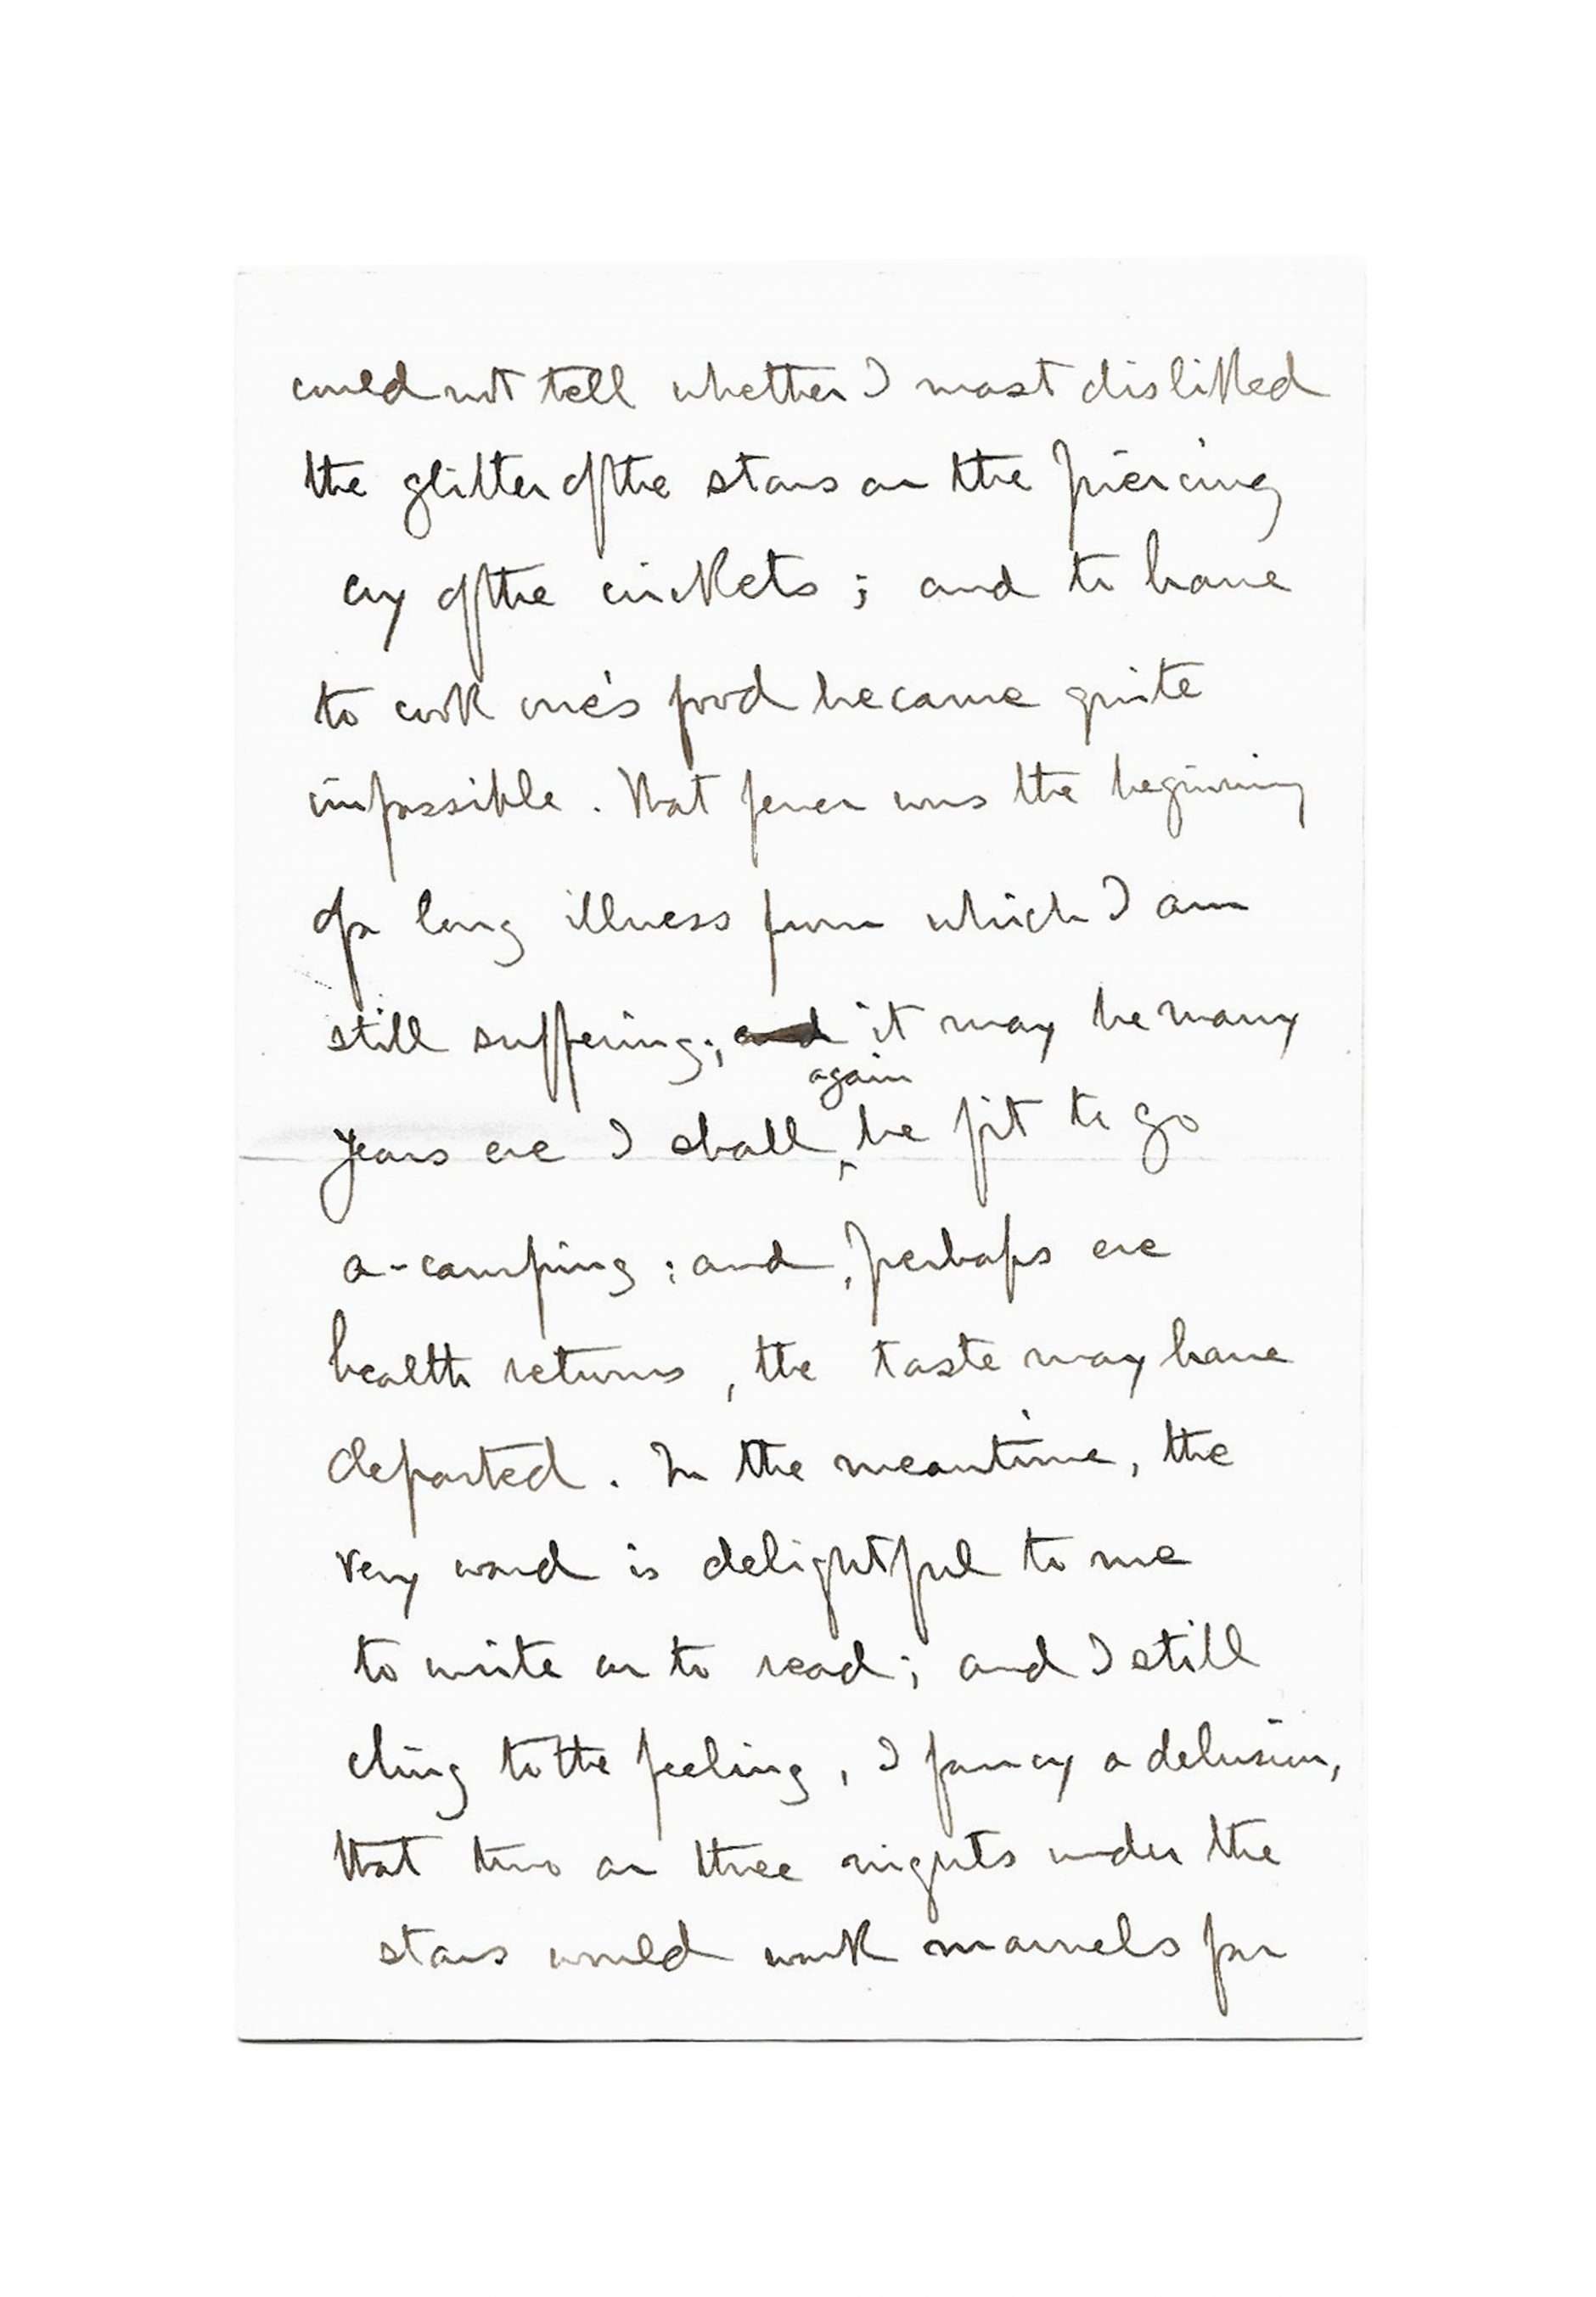 could not tell whether I most disliked
the glitter of the stars or the piercing
cry of the crickets ; and to have
to cook one's food became quite
impossible . That fever was the beginning
of a long illness from which I am
still suffering ; and it may be many
again
years ere I shall ‸ be fit to go
a-camping ; and , perhaps ere
health returns , the taste may have
departed . In the meantime , the
very word is delightful to me
to write or to read ; and I still
cling to the feeling , I fancy a delusion ,
that two or three nights under the
stars would work marvels for